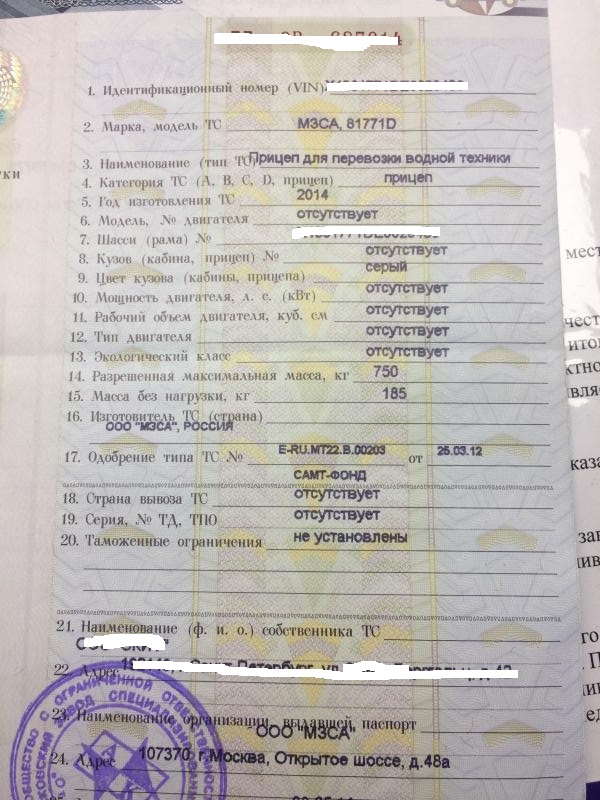 1. Идентификационный номер (VIN)
2. Марка, модель ТС МЗСА, 81771D
3. Наименование (тип ТС) Прицеп для перевозки водной техники
4. Категория ТС (А, В, С, D, прицеп) прицеп
5. Год изготовления ТС 2014
6. Модель, № двигателя отсутствует
7. Шасси (рама) №
8. Кузов (кабина, прицеп) № отсутствует
9. Цвет кузова (кабины, прицепа) серый
10. Мощность двигателя, л. с. (кВт) отсутствует
11. Рабочий объем двигателя, куб. см отсутствует
12. Тип двигателя отсутствует
13. Экологический класс отсутствует
14. Разрешенная максимальная масса, кг 750
15. Масса без нагрузки, кг 185
16. Изготовитель ТС (страна)
ООО "МЗСА", РОССИЯ
17. Одобрение типа ТС № E-RU.MT22.B.00203 от 26.03.12
САМТ-ФОНД
18. Страна вывоза ТС отсутствует
19. Серия, № ТД, ТПО отсутствует
20. Таможенные ограничения не установлены
21. Наименование (ф. и. о.) собственника ТС
22. Адрес
23. Наименование организации, выдавшей паспорт
ООО "МЗСА"
24. Адрес 107370 г.Москва, Открытое шоссе, д.48а